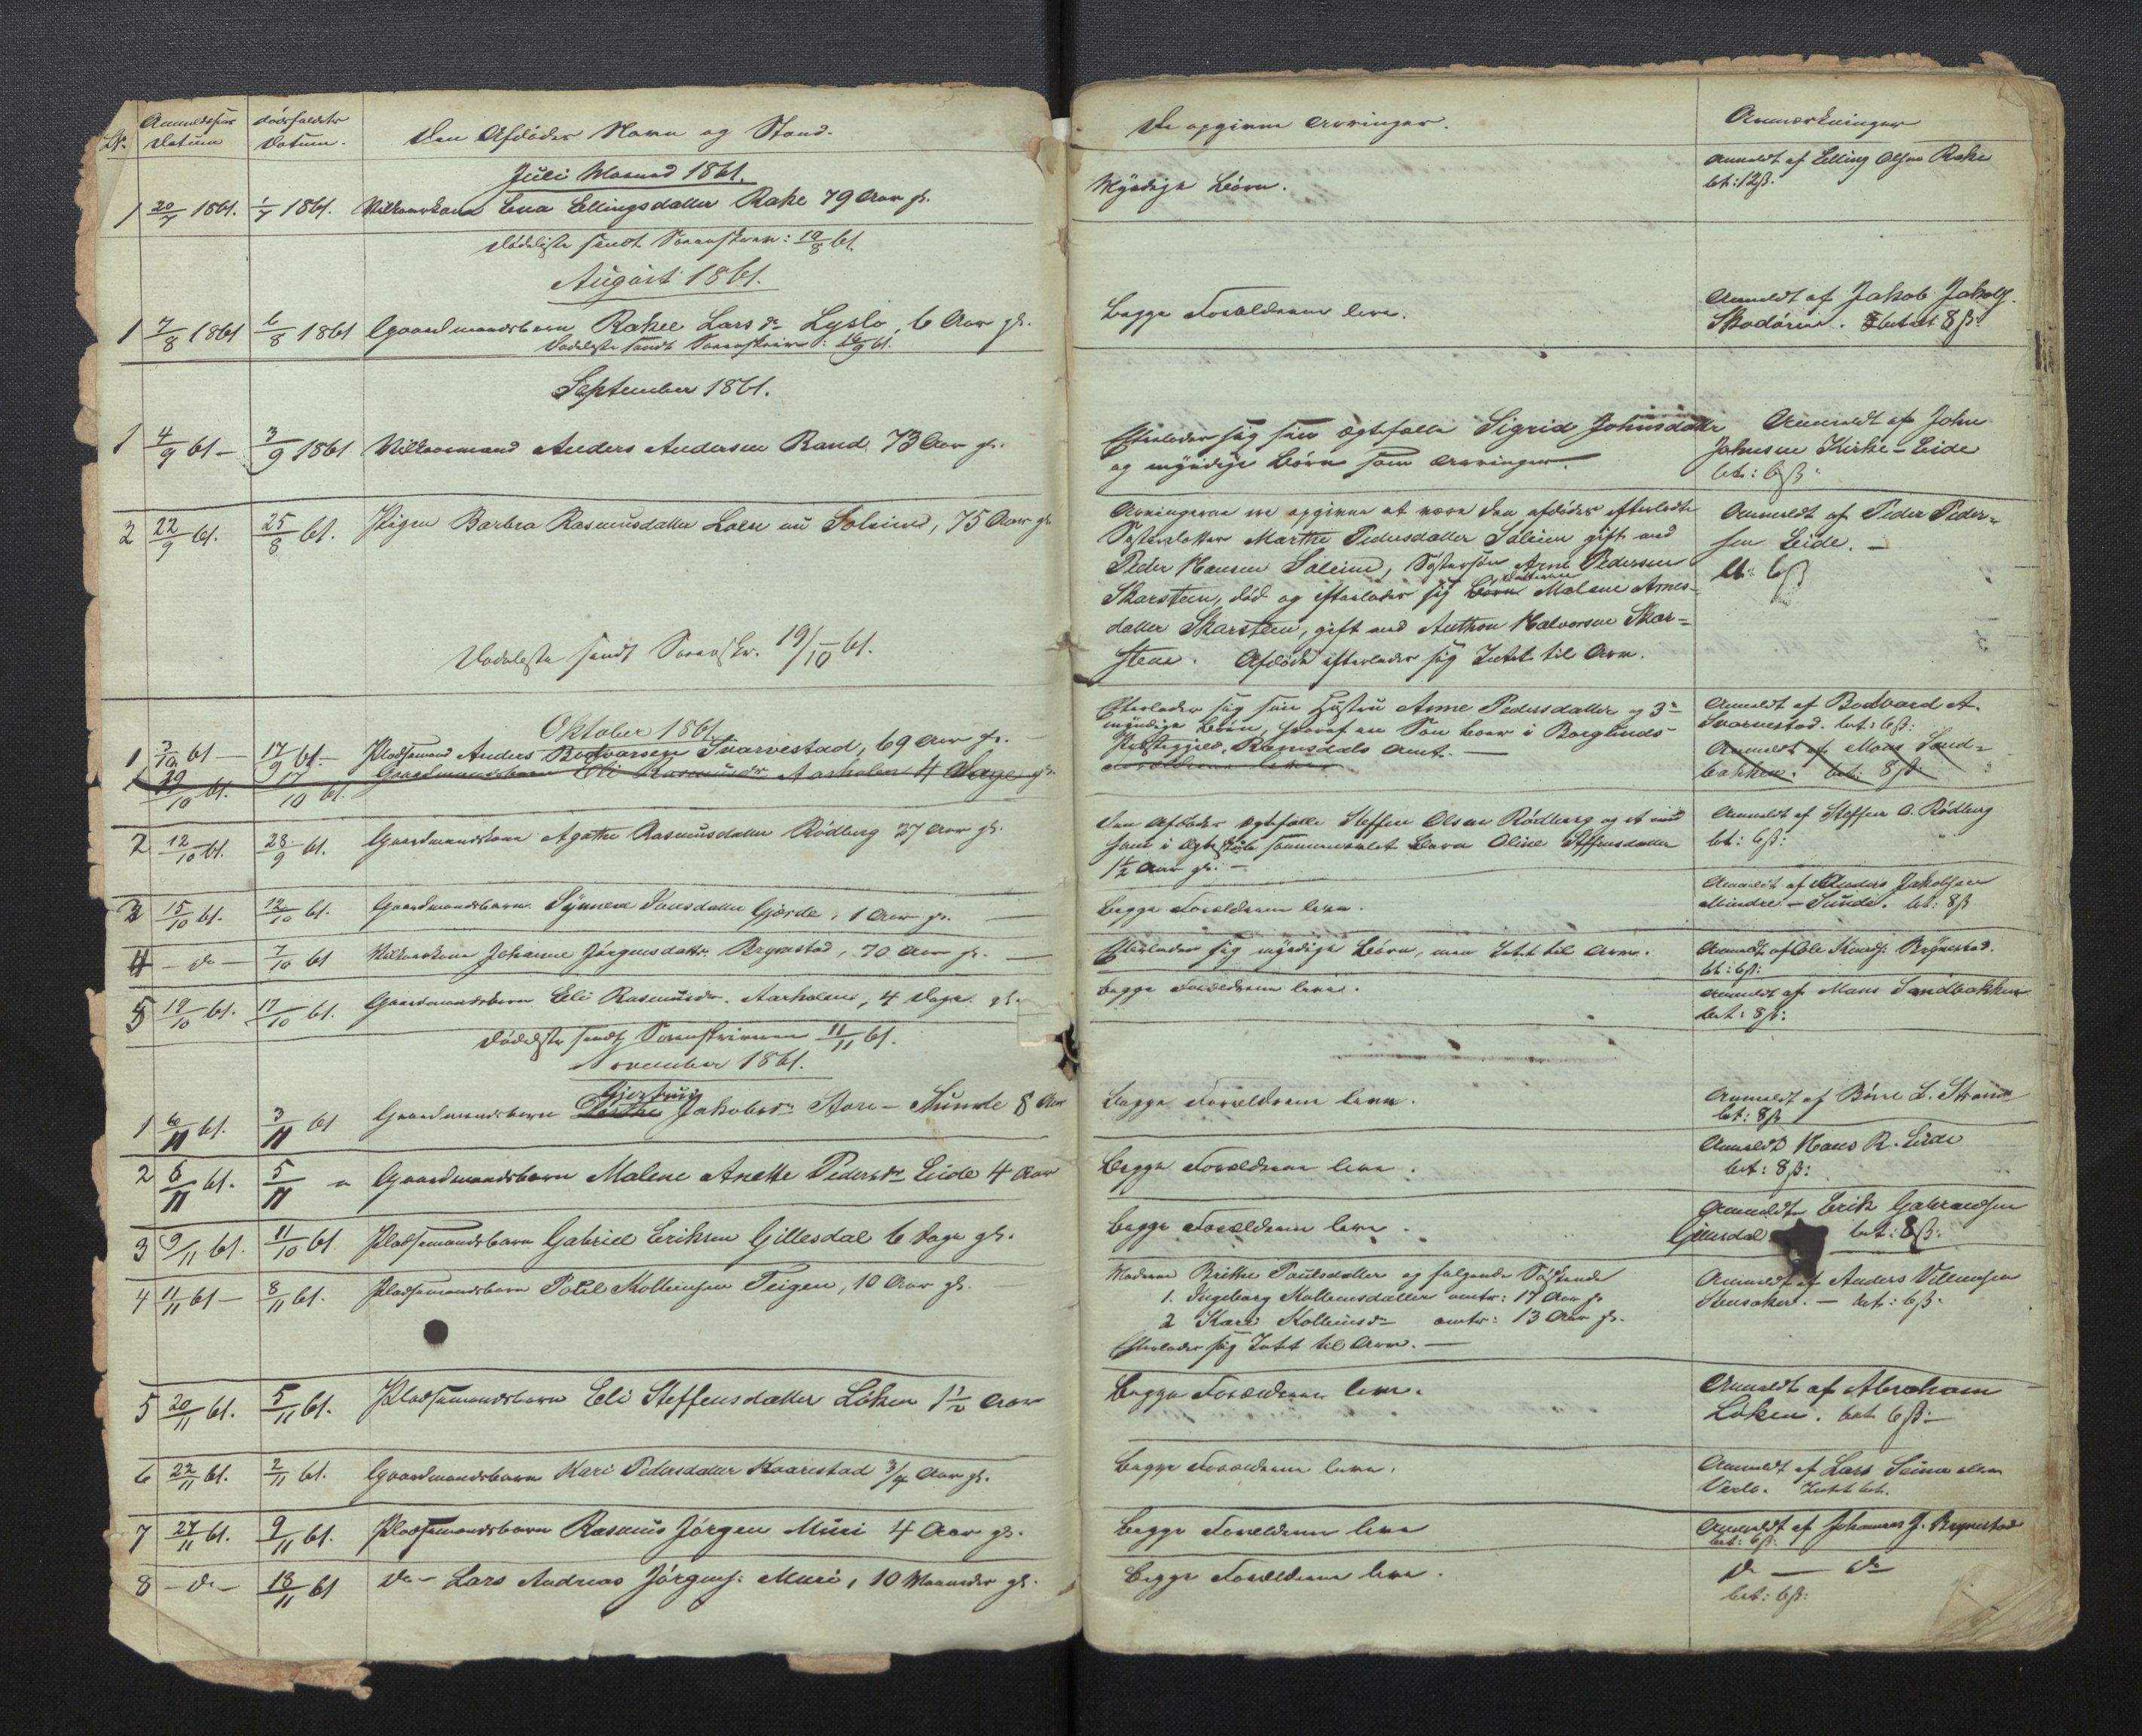 No. Anmeldelsens Datum dødsfaldets Datum. Den Afdødes Navn og Stand.
Juli Maaned 1861.
1 20/7 1861. 1/7 1861. Vilkaarskone Ena Ellingsdatter Rake 79 Aar gl.
Dødsliste sendt Sorenskriv: 19/8 61.
August 1861.
1 7/8 1861 6/8 1861 Gaardmandsbarn Rakel Lars Dr Lyslo, 6 Aar gl.
Dødsliste sendt Sorenskriver: 16/9 61.
September 1861.
1 4/9 61 – 3/9 1861 Vilkaarsmand Anders Andersen Rand 73 Aar gl.
2 22/9 61. 25/8 61. Pigen Barbra Rasmusdatter Loen nu Soleim, 75 Aar gl.
Dødsliste sendt Sorenskr. 19/10 61.
Oktober 1861.
1 3/10 61 – 17/9 61 – Pladsemand Anders Bodvarsen Svarvestad, 69 Aar gl. –
19/10 61. 17/10 61. Gaardmandsbarn Eli Rasmusdr Aarholen 4 Dage gl.
2 12/10 61. 28/9 61. Gaardmandskone Agathe Rasmusdatter Rødberg 27 Aar gl.
3 15/10 61. 12/10 61. Gaardmandsbarn Synneve Dansdatter Gjerde, 1 Aar gl. –
4 – Do – 7/10 61 Vilkaarskone Johanne Jørgensdattr. Brynestad, 70 Aar gl. –
5 19/10 61. 17/10 61. Gaardmandsbarn Eli Rasmusdr. Aarholen, 4 Dage gl.
Dødsliste sendt Sorenskriveren 11/11 61.
November 1861.
Gjertrud
1 6/11 61. 3/11 61 Gaardmandsbarn Jakobsdr Store – Sunde 8 Aar
2 6/11 61. 5/11 " Gaardmandsbarn Malene Anette Pedersdr Eide 4 Aar
3 9/11 61. 11/10 61 Pladsemandsbarn Gabriel Eriksen Gillesdal 6 Dage gl.
4 11/11 61 – 8/11 61. Pladsemandsbarn Poul Kolbeinsen Teigen, 10 Aar gl.
5 20/11 61. 5/11 61. Pladsemandsbarn Eli Steffensdatter Løken 1 1/2 Aar
6 22/11 61. 2/11 61. Gaardmandsbarn Kari Pedersdatter Kaarestad 3/4 Aar gl.
7 27/11 61. 9/11 61. Pladsemandsbarn Rasmus Jørgen Muri 4 Aar gl.
8 – Do – 18/11 61 Do – Lars Andreas Jørgens: Muri, 10 Maaneder gl.
De opgivne Arvinger.
Myndige Børn.
Begge Forældrene leve.
Efterlader sig sin Ægtefælle Sigrid Johnsdatter
og myndige Børn som Arvinger.
Arvingerne ere opgivne at være den afdødes efterladte
Søsterdatter Marthe Pedersdatter Soleim gift med
Peder Hansen Soleim, Søstersøn Arne Pedersen
Datteren
Skarsteen, død og efterlader sig Børn Malene Arnes-
datter Skarsteen, gift med Anthon Halvorsen Skar=
steen. Afdøde efterlader sig Intet til Arv.
Efterlader sig sin Hustru Anne Pedersdatter og 3
myndige Børn, hvoraf en Søn boer i Borgunds
Præstegjeld, Romsdals Amt. –
Forældrene leve
Den Afdødes Ægtefælle Steffen Olsen Rødberg og et med
ham i Ægteskab sammenavlet Barn Oline Steffensdatter
1 1/2 Aar gl. –
Begge Forældrene leve.
Efterlader sig myndige Børn, men Intet til Arv.
Begge Forældrene leve.
Begge Forældrene leve.
Begge Forældrene leve.
Begge Forældrene leve.
Moderen Brithe Paulsdatter og følgende Søskende
1. Ingeborg Kolbeinsdatter omtr: 17 Aar gl
2 Kari Kolbeinsdr omtr: 13 Aar gl.
Efterlader sig Intet til Arv. –
Begge Forældrene leve.
Begge Forældrene leve.
Begge Forældrene leve
Begge Forældrene leve.
Anmærkninger
Anmeldt af Elling Olsen Rake
bet: 12ß.
Anmeldt af Jakob Jakobs.
Skadøen. betalt 8 ß.
Anmeldt af John
Johnsen Kirke-Eide
bet: 6ß
Anmeldt af Peder Peder=
sen Eide. –
bt: 6ß
Anmeldt af Bodvard A.
Svarvestad. bet: 6ß:
Anmeldt af Mons Sand=
bakken. bet: 8 ß.
Anmeldt af Steffen O. Rødberg
bet: 6ß:
Anmeldt af Anders Jakobsen
Mindre – Sunde. bet: 8ß
Anmeldt af Ole Brynestad.
bt: 6ß:
Anmeldt af Mons Sandbakken
bet: 8ß:
Anmeldt af Børre L. Strand
bet: 8ß
Anmeldt Hans R. Eide
bet: 8ß:
Anmeldt Erik Gabrielsen
bet: 8ß:
Anmeldt af Anders Villumsen
Steensaker. – bet: 6ß.
Anmeldt af Abraham
Løken. bet 6ß: –
Anmeldt af Lars
Intet bet.
Anmeldt af Johannes J. Brynestad
bet: 6ß:
Do – Do
bet: 6ß: